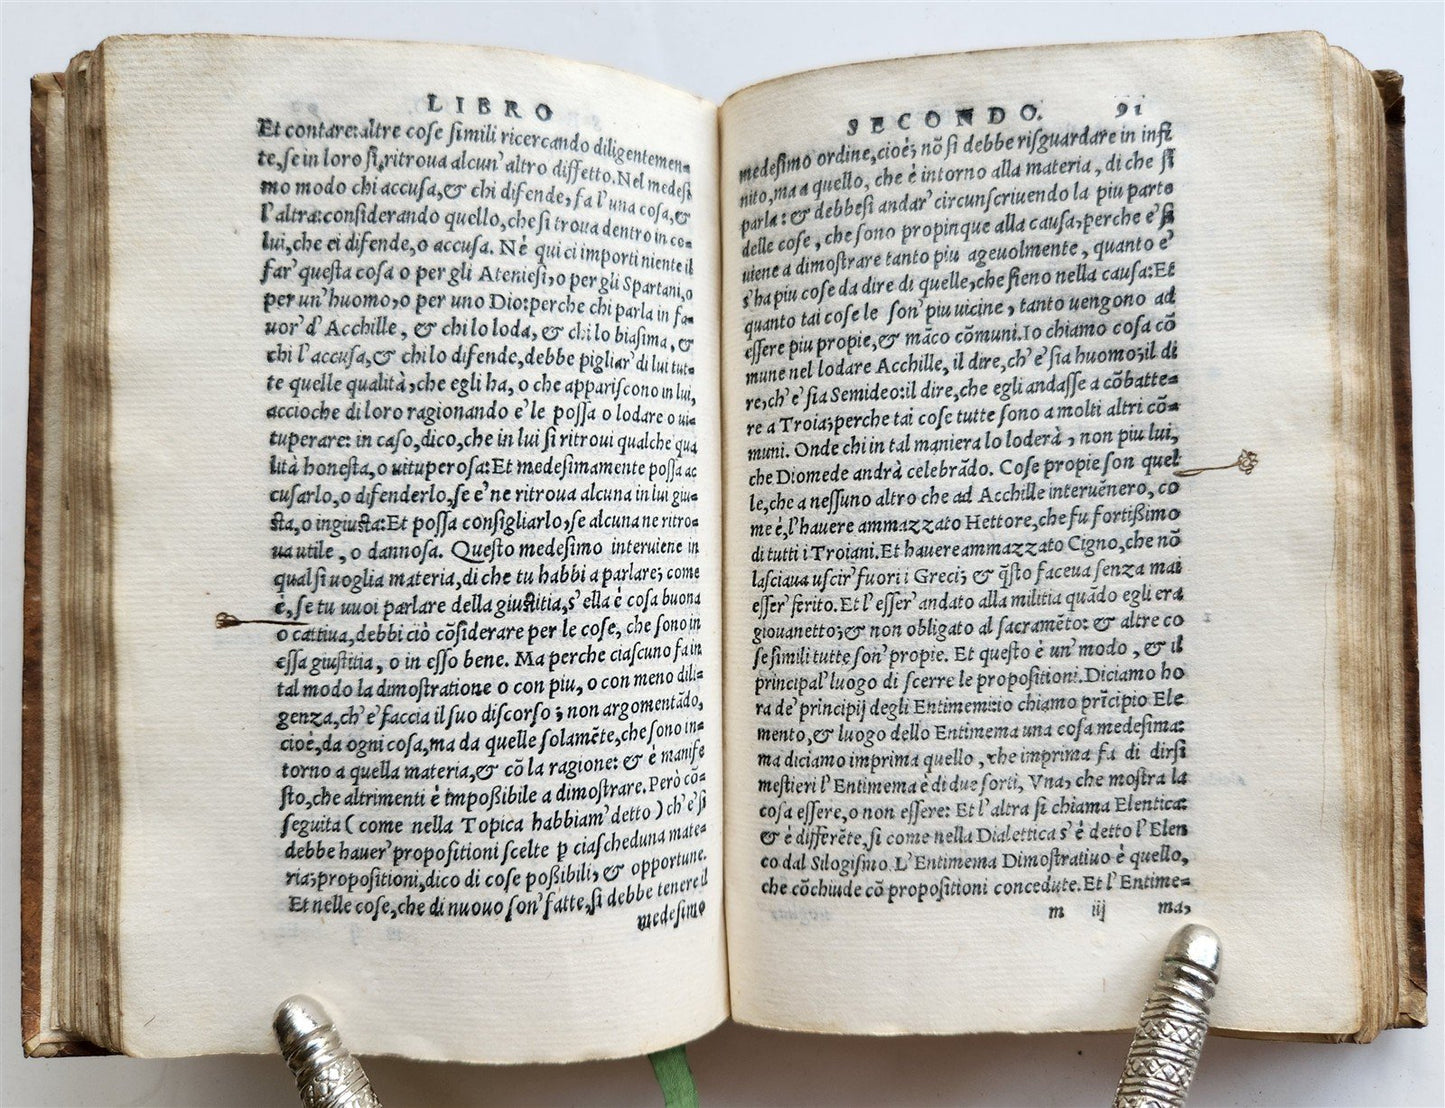 LIBRO
Et contare: altre cose simili ricercando diligentemen=
te, se in loro si ritroua alcun' altro diffetto. Nel medesi
mo modo chi accusa, & chi difende, fa l'una cosa, &
l'altra: considerando quello, che si troua dentro in co=
lui, che ei difende, o accusa. Nè qui ci importi niente il
far' questa cosa o per gli Ateniesi, o per gli Spartani, o
per un' huomo, o per uno Dio: perche chi parla in fa=
uor' d' Acchille, & chi lo loda, & chi lo biasima, &
chi l'accusa, & chi lo difende, debbe pigliar' di lui tut=
te quelle qualità, che egli ha, o che appariscono in lui,
accioche di loro ragionando e' le possa o lodare o ui=
tuperare: in caso, dico, che in lui si ritroui qualche qua
lità honesta, o uituperosa: Et medesimamente possa ac
cusarlo, o difenderlo, se e' ne ritroua alcuna in lui giu=
sta, o ingiusta: Et possa consigliarlo, se alcuna ne ritro=
ua utile, o dannosa. Questo medesimo interuiene in
qual si uoglia materia, di che tu habbi a parlare; come
è, se tu uuoi parlare della giustitia, s' ella è cosa buona
o cattiua, debbi ciò cōsiderare per le cose, che sono in
essa giustitia, o in esso bene. Ma perche ciascuno fa in
tal modo la dimostratione o con piu, o con meno dili=
genza, ch' e' faccia il suo discorso; non argomentādo,
cioè, da ogni cosa, ma da quelle solamēte, che sono in=
torno a quella materia, & cō la ragione: & è manife
sto, che altrimenti è impoßibile a dimostrare. Però cō=
seguita (come nella Topica habbiam' detto) ch' e' si
debbe hauer' propositioni scelte p ciascheduna mate=
ria; propositioni, dico di cose poßibili, & opportune.
Et nelle cose, che di nuouo son' fatte, si debbe tenere il
medesimo
SECONDO. 91
medesimo ordine, cioè; nō si debbe risguardare in infi
nito, ma a quello, che è intorno alla materia, di che si
parla: & debbesi andar' circunscriuendo la piu parte
delle cose, che sono propinque alla causa, perche e' si
uiene a dimostrare tanto piu ageuolmente, quanto e'
s' ha piu cose da dire di quelle, che sieno nella causa: Et
quanto tai cose le son' piu uicine, tanto uengono ad
essere piu propie, & māco cōmuni. Io chiamo cosa cō
mune nel lodare Acchille, il dire, ch' e' sia huomo; il di
re, ch' e' sia Semideo: il dire, che egli andasse a cōbatte=
re a Troia; perche tai cose tutte sono a molti altri cō=
muni. Onde chi in tal maniera lo loderà, non piu lui,
che Diomede andrà celebrādo. Cose propie son quel
le, che a nessuno altro che ad Acchille interuēnero, co
me è, l'hauere ammazzato Hettore, che fu fortißimo
di tutti i Troiani. Et hauere ammazzato Cigno, che nō
lasciaua uscir' fuori i Greci; & q̄sto faceua senza mai
esser' ferito. Et l'esser' andato alla militia quādo egli era
giouanetto; & non obligato al sacramēto: & altre co
se simili tutte son' propie. Et questo è un' modo, & il
principal' luogo di scerre le propositioni. Diciamo ho
ra de' principij degli Entimemi: io chiamo prīcipio Ele
mento, & luogo dello Entimema una cosa medesima:
ma diciamo imprima quello, che imprima fa di dirsi
mestieri l'Entimema è di due sorti, Vna, che mostra la
cosa essere, o non essere: Et l'altra si chiama Elentica:
& è differēte, si come nella Dialettica s' è detto l'Elen
co dal Silogismo. L'Entimema Dimostratiuo è quello,
che cōchiude cō propositioni concedute. Et l'Entime=
m iij ma,